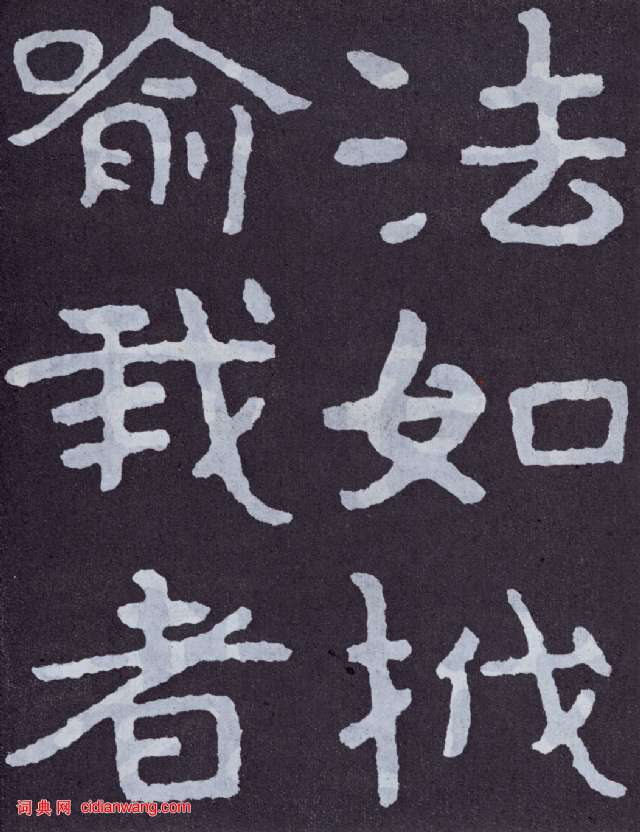 法如栰
喻我者
词典网 cidianwang.com